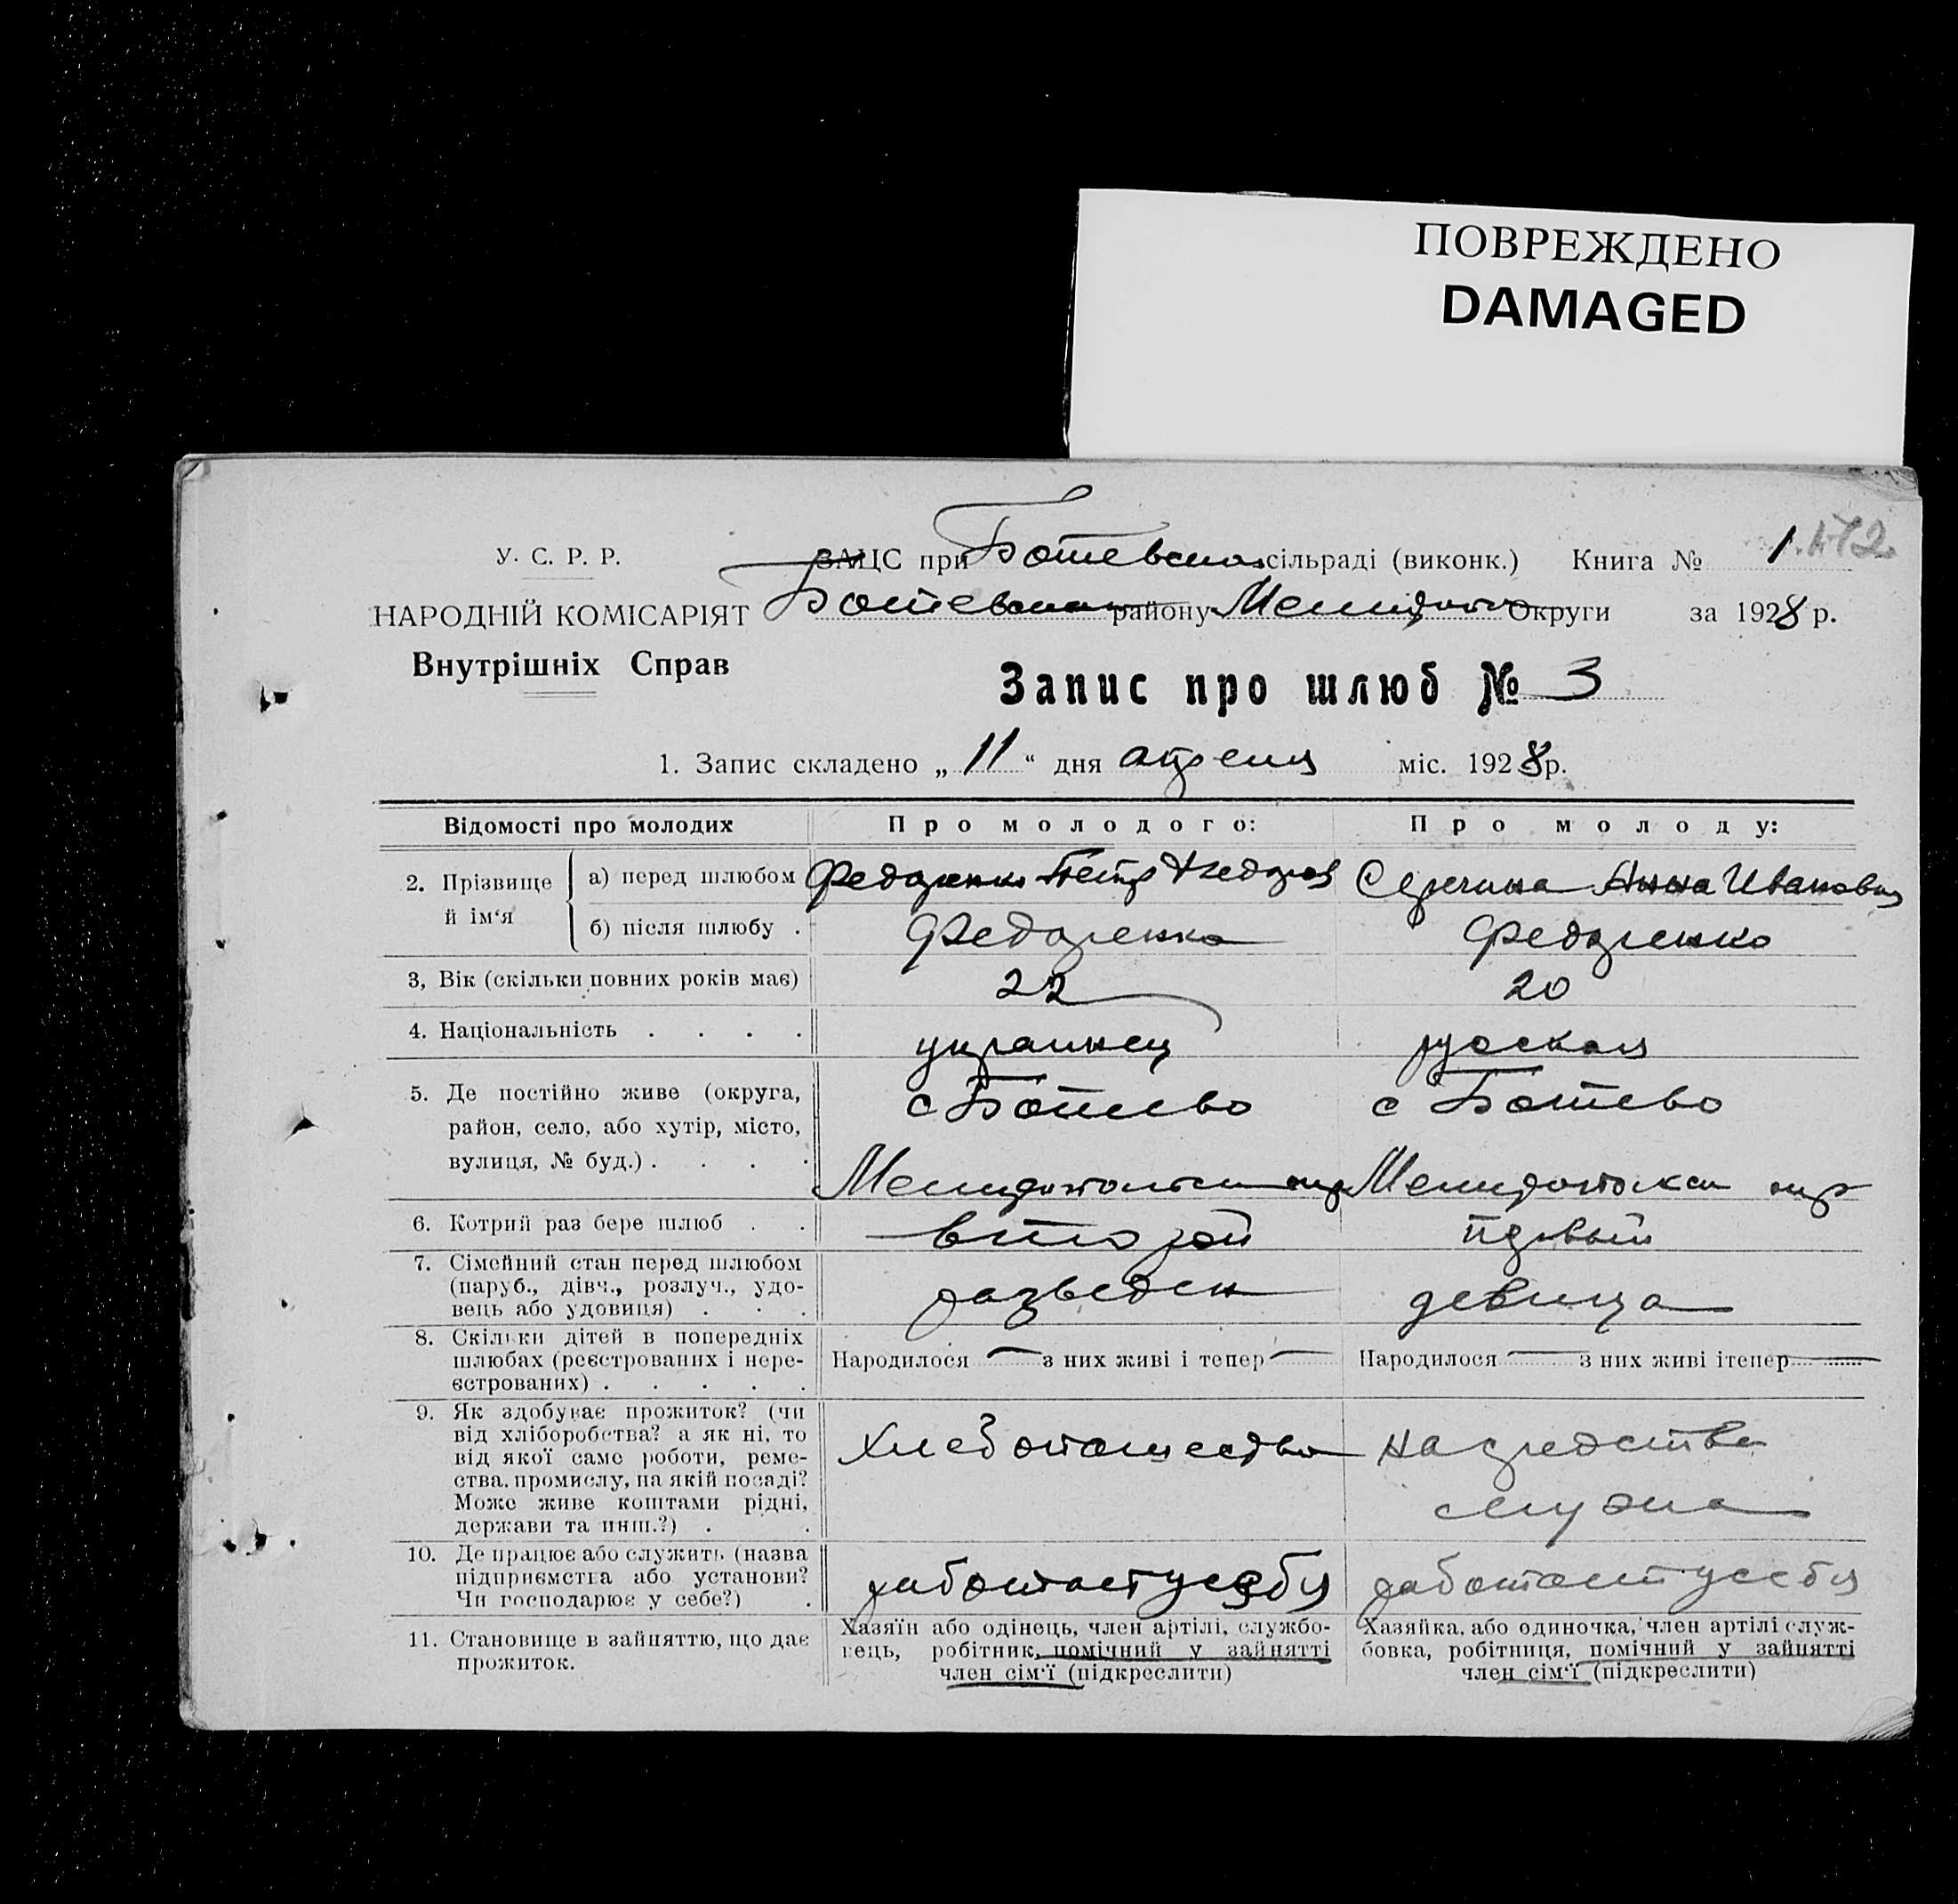 ПОВРЕЖДЕНО
DAMAGED
У. С. Р. Р.
НАРОДНІЙ КОМІСАРІЯТ
Внутрішніх Справ
ЗАЦС при Ботевском сільраді (виконк.) Книга № 1
Ботевском району Мелитоп Округи за 1928 р.
Запис про шлюб № 3
1. Запис складено „ 11 “ дня апреля міс. 1928 р.
Відомості про молодих
Про молодого:
Про молоду:
2. Прізвище й ім‘я
а) перед шлюбом
Федоренко Петр Федоров
Анна Ивановна
б) після шлюбу .
Федоренко
Федоренко
3, Вік (скільки повних років має)
22
20
4. Національність . . . .
украинец
русская
5. Де постійно живе (округа,
район, село, або хутір, місто,
вулиця, № буд.) . . . .
с Ботево
Мелитопольск окр
с Ботево
Мелитопольск окр
6. Котрий раз бере шлюб . .
второй
первый
7. Сімейний стан перед шлюбом
(паруб., дівч., розлуч., удо-
вець або удовиця) . . .
разведен
девица
8. Скільки дітей в попередніх
шлюбах (реєстрованих і нере-
єстрованих) . . . . .
Народилося — з них живі і тепер —
Народилося — з них живі ітепер —
9. Як здобуває прожиток? (чи
від хліборобства? а як ні, то
від якої саме роботи, реме-
ства, промислу, на якій посаді?
Може живе коштами рідні,
держави та инш.?) . .
Хлебопашество
на средства
мужа
10. Де працює або служить (назва
підприємства або установи?
Чи господарює у себе?) .
работает у себя
работает у себя
11. Становище в зайняттю, що дає
прожиток.
Хазяїн або одінець, член артілі, службо-
вець, робітник, помічний у зайнятті
член сім‘ї (підкреслити)
Хазяйка, або одиночка, член артілі служ-
бовка, робітниця, помічний у зайнятті
член сім‘ї (підкреслити)